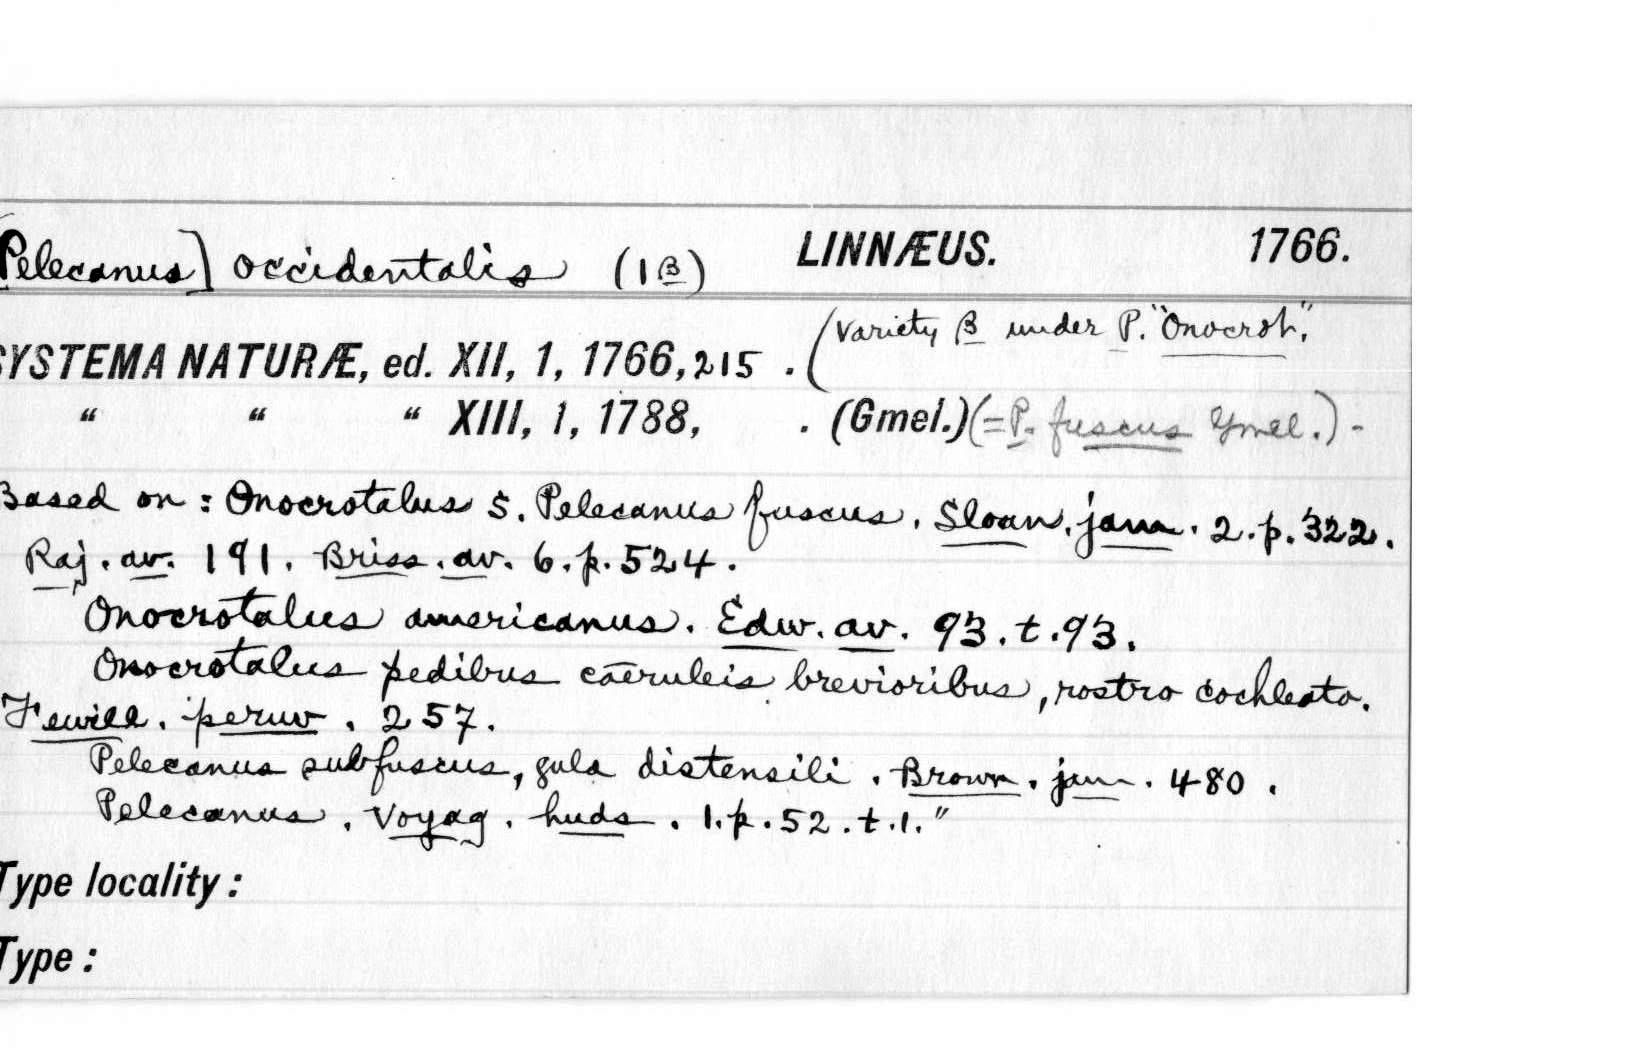 [Pelecanus] occidentalis (1β) LINNÆUS. 1766.
(Variety β under P. "Onocrot",
SYSTEMA NATURÆ, ed. XII, 1, 1766, 215 .
" " " XIII, 1, 1788, . (Gmel.) (=P. fuscus Gmel.) -
Based on : Onocrotalus s. Pelecanus fuscus. Sloan. jam. 2. p. 322.
Raj. av. 191. Briss. av. 6. p. 524.
Onocrotalus americanus. Edw. av. 93. t. 93.
Onocrotalus pedibus cæruleis brevioribus, rostro cochleato.
Fewill. peruv. 257.
Pelecanus subfuscus, gula distensili. Brown. jam. 480.
Pelecanus. Voyag. huds. 1. p. 52. t. 1."
Type locality :
Type :